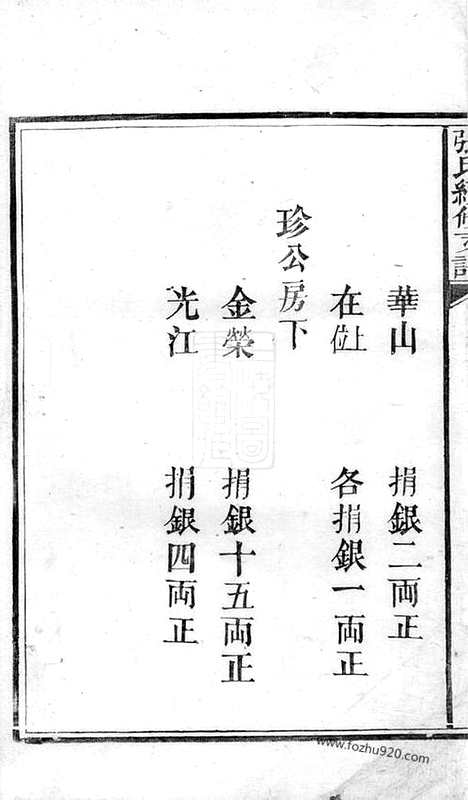 張氏續修支譜
華山 捐銀二両正
在上位 各捐銀一両正
珍公房下
金榮 捐銀十五両正
光江 捐銀四両正
www.fozhu920.com